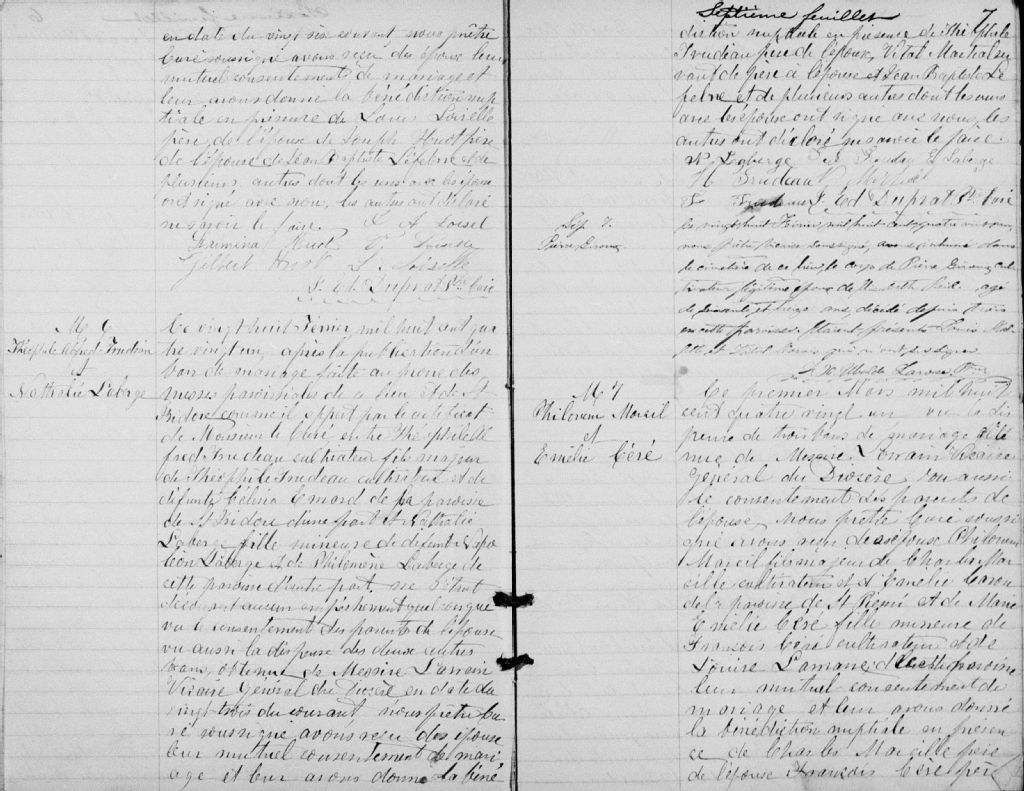 en date du vingt six courant nous prêtre
Curé soussigné avons reçu des époux leur
mutuel consentement de mariage et
leur avons donné la bénédiction nup
tiale en présence de Louis Loiselle
père de l'épouse de Joseph Huot père
de l'épouse de Jean Baptiste Lefebvre et de
plusieurs autres dont les uns avec les époux
ont signé avec nous, les autres ont déclaré
ne savoir le faire. L A Loisel
Huot Loiselle
Gilbert Huot L. Loiselle
J. Ed. Duprat Ptre Curé
M. 6
Théophile Alfred Trudeau
Nathalie Laberge
Ce vingt huit Février mil huit cent qua
tre vingt un, après la publication d'un
ban de mariage faite au prône des
messes paroissiales de ce lieu et de St
Isidore comme il appert par le certificat
de Monsieur le Curé, entre Théophile Al
fred Trudeau cultivateur fils majeur
de Théophile Trudeau cultivateur et de
défunte Célina Emard de la paroisse
de St Isidore d'une part et Nathalie
Laberge fille mineure de défunt Napo
léon Laberge et de Philomène Laberge de
cette paroisse d'autre part, ne s'étant
découvert aucun empêchement quelconque
vu le consentement des parents de l'épouse
vu aussi la dispense des deux autres
bans, obtenue de Messire Lorrain
Vicaire Général du Diocèse en date du
vingt trois du courant nous prêtre Cu
ré soussigné avons reçu des époux
leur mutuel consentement de mari
age et leur avons donné la béné
Septième feuillet 7
diction nuptiale en présence de Théophile
Trudeau père de l'époux, Vital Martial ser
vant de père à l'épouse et Jean Baptiste Le
febvre et de plusieurs autres dont les uns
avec les époux ont signé avec nous, les
autres ont déclaré ne savoir le faire.
N. Laberge Trudeau Laberge
H Trudeau
Trudeau J. Ed Duprat Ptre Curé
Sép. 7.
Pierre
Le vingt huit Février, mil huit cent quatre vingt un,
nous Prêtre Vicaire soussigné, avons inhumé dans
le cimetière de ce lieu, le corps de Pierre cul
tivateur, légitime époux de agé
de ans, décédé depuis trois
en cette paroisse. Etaient présents Louis
et Vital qui n'ont pu signer
Larose, Ptre
M. 7
Philorum Mareil
et
Emélie Céré
Ce premier Mars mil huit
cent quatre vingt un vu la dis
pense de trois bans de mariage obte
nue de Messire Lorrain Vicaire
Général du Diocèse vu aussi
le consentement des parents de
l'épouse, Nous prêtre Curé soussi
gné avons reçu de les époux Philorum
Mareil fils majeur de Charles Mar
eille cultivateur et d'Emélie Caron
de la paroisse de St Rémi et de Marie
Emélie Céré fille mineure de
François Céré cultivateur et de
Louise Lamanque de cette paroisse
leur mutuel consentement de
mariage et leur avons donné
la bénédiction nuptiale en présen
ce de Charles Mareille père
de l'époux François Céré père